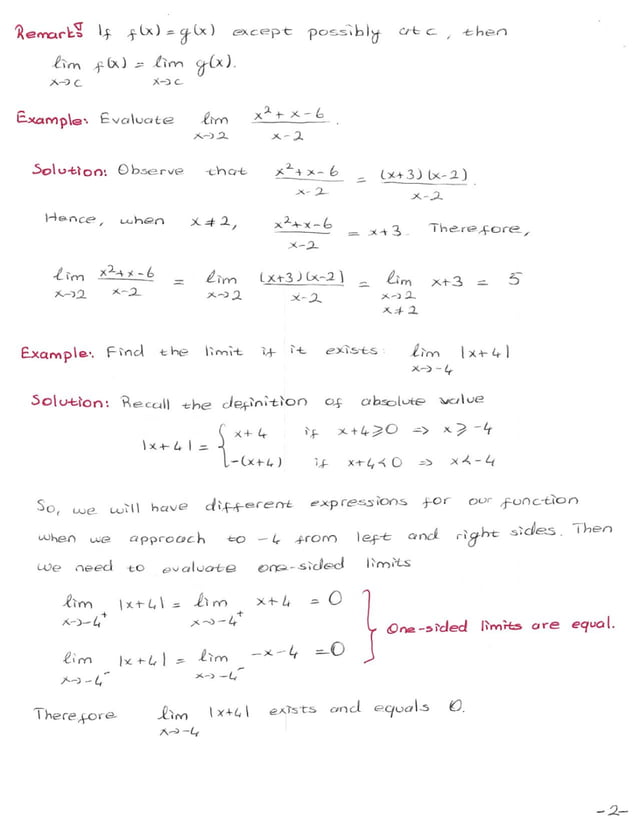 Remark: If f(x) = g(x) except possibly at c, then
lim x→c f(x) = lim x→c g(x).
Example: Evaluate lim x→2 (x² + x - 6)/(x - 2).
Solution: Observe that (x² + x - 6)/(x - 2) = ((x+3)(x-2))/(x-2).
Hence, when x ≠ 2, (x² + x - 6)/(x - 2) = x+3. Therefore,
lim x→2 (x² + x - 6)/(x - 2) = lim x→2 ((x+3)(x-2))/(x-2) = lim x→2 x≠2 x+3 = 5
Example: Find the limit if it exists: lim x→-4 |x+4|
Solution: Recall the definition of absolute value
|x+4| = { x+4 if x+4 ≥ 0 ⇒ x ≥ -4
-(x+4) if x+4 < 0 ⇒ x < -4
So, we will have different expressions for our function
when we approach to -4 from left and right sides. Then
we need to evaluate one-sided limits
lim x→-4⁺ |x+4| = lim x→-4⁺ x+4 = 0
One-sided limits are equal.
lim x→-4⁻ |x+4| = lim x→-4⁻ -x-4 = 0
Therefore lim x→-4 |x+4| exists and equals 0.
-2-